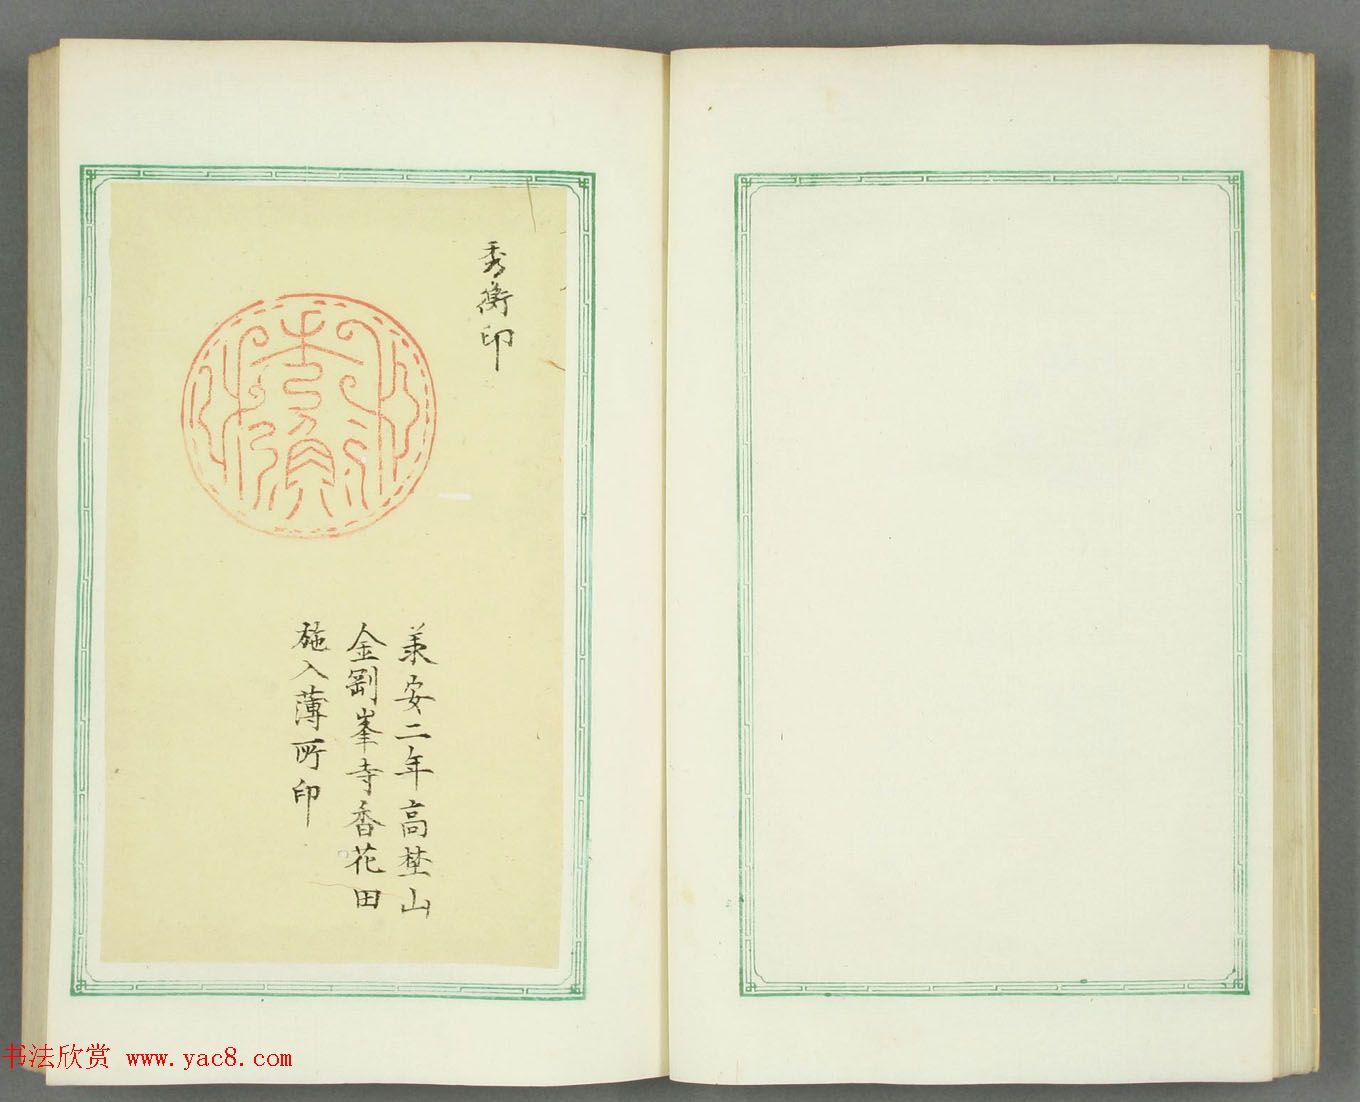 秀衡印
承安二年高埜山
金剛峯寺香花田
施入薄所印
书法欣赏 www.yac8.com